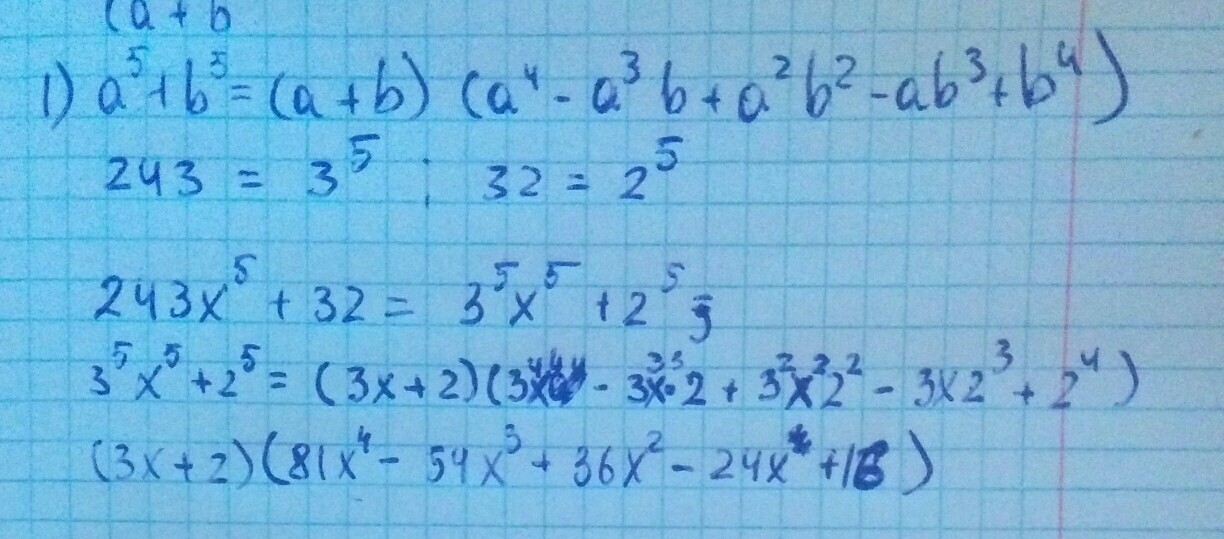 (a + b
1) a⁵ + b⁵ = (a + b) (a⁴ - a³ b + a² b² - ab³ + b⁴)
243 = 3⁵ ; 32 = 2⁵
243x⁵ + 32 = 3⁵x⁵ + 2⁵ ;
3⁵x⁵ + 2⁵ = (3x + 2)(3⁴x⁴ - 3³x³·2 + 3²x²2² - 3x2³ + 2⁴)
(3x + 2)(81x⁴ - 54x³ + 36x² - 24x + 16)